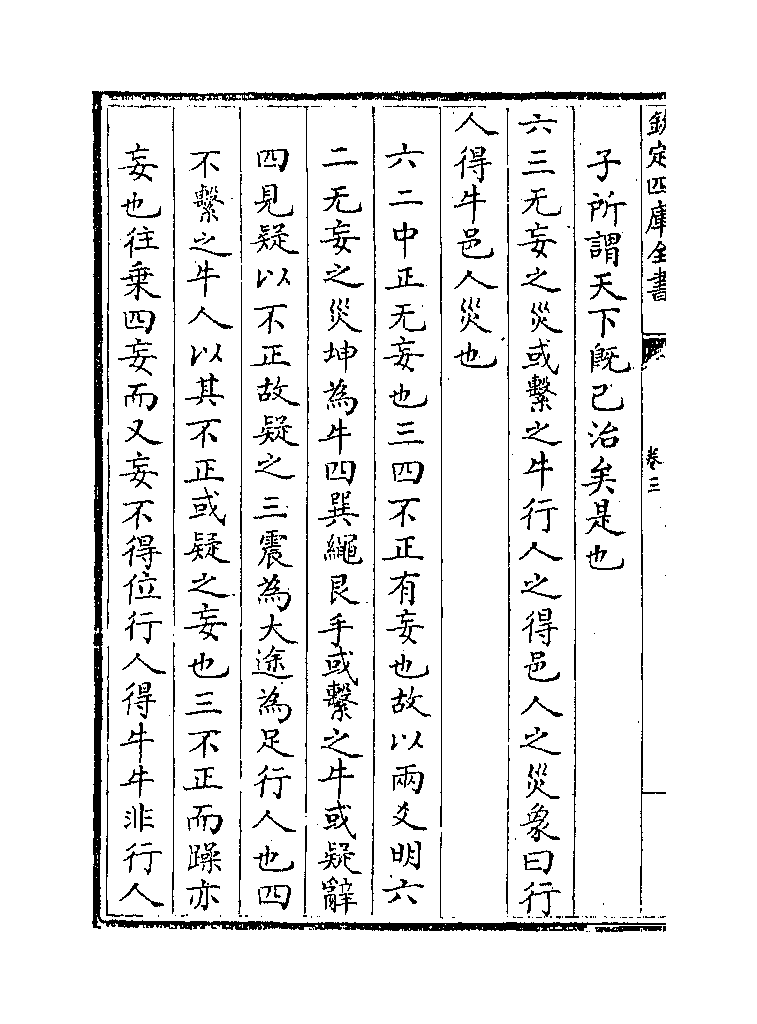 欽定四庫全書
卷三
子所謂天下既已治矣是也
六三无妄之災或繫之牛行人之得邑人之災象曰行
人得牛邑人災也
六二中正无妄也三四不正有妄也故以兩爻明六
二无妄之災坤為牛四巽繩艮手或繫之牛或疑辭
四見疑以不正故疑之三震為大途為足行人也四
不繫之牛人以其不正或疑之妄也三不正而躁亦
妄也往乗四妄而又妄不得位行人得牛牛非行人